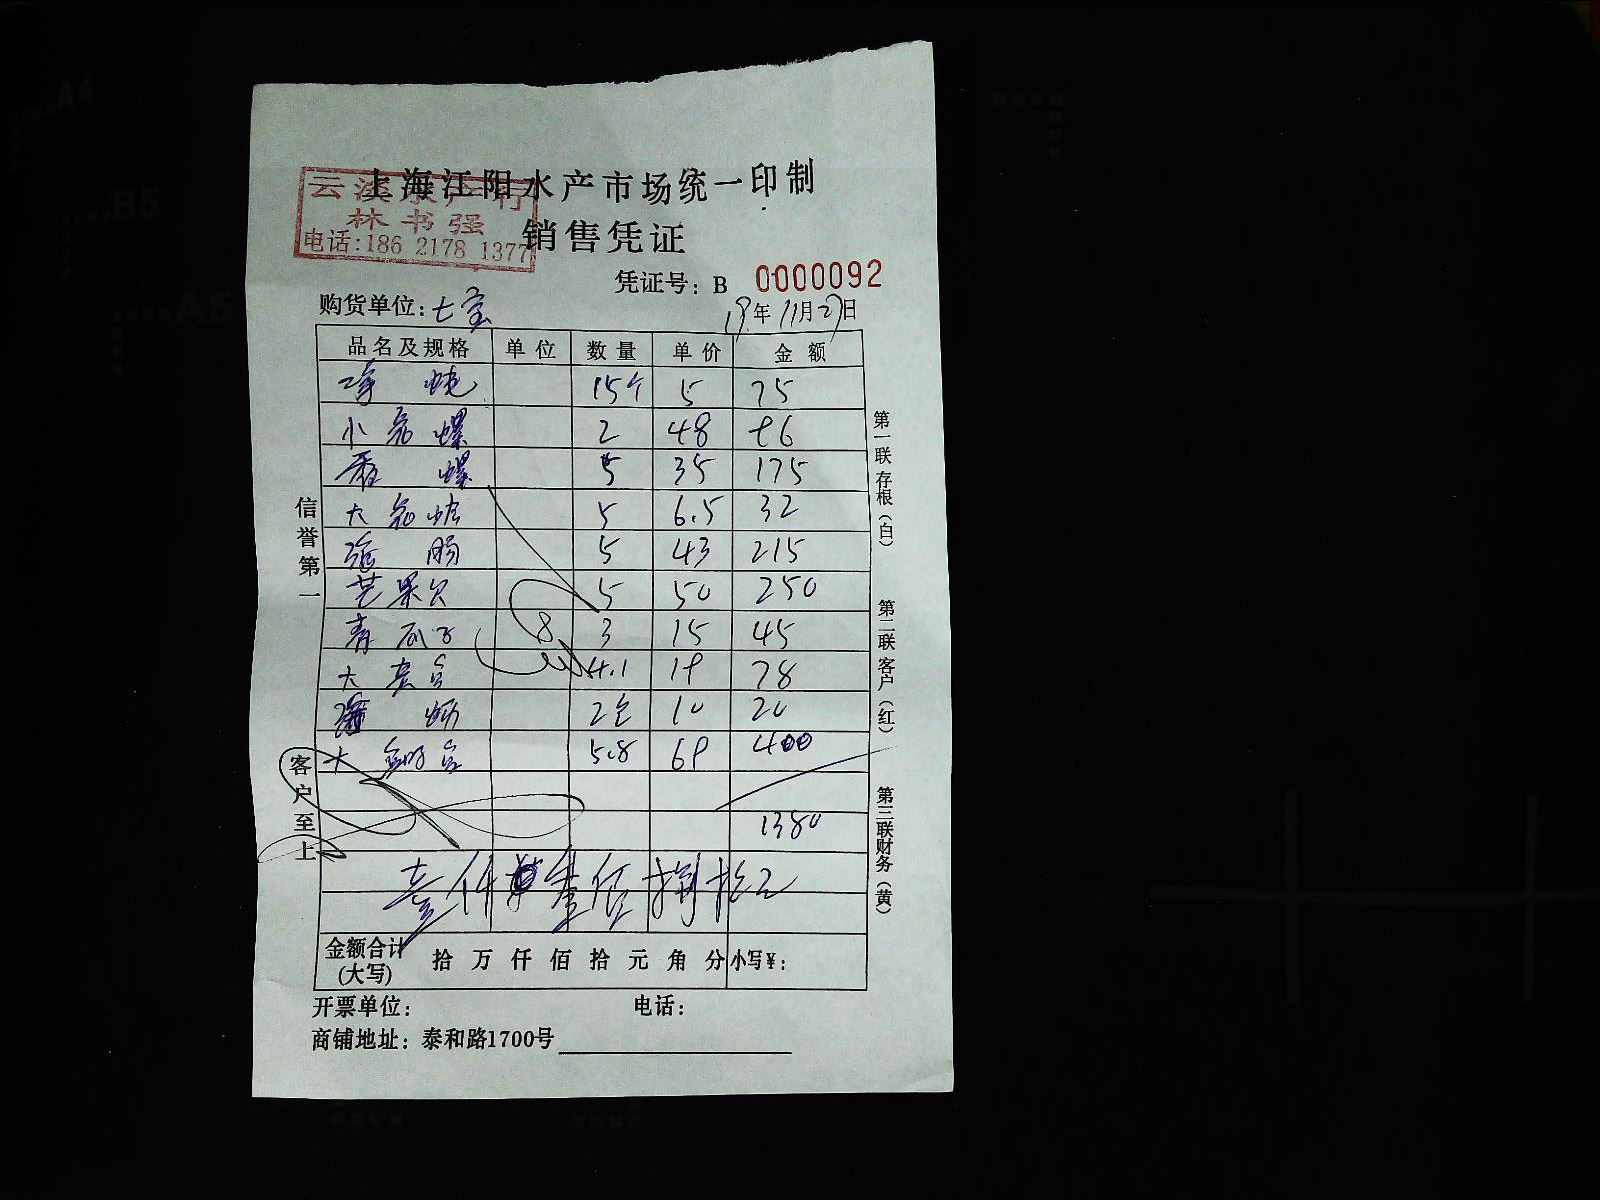 上海江阳水产市场统一印制
云溪水产行
林书强
电话:186 2178 1377
销售凭证
凭证号: B 0000092
购货单位: 七宝
19年11月27日
品名及规格 单位 数量 单价 金额
15个 5 75
小 螺 2 48 96
香螺 5 35 175
大 5 6.5 32
5 43 215
芒果贝 5 50 250
青瓜子 3 15 45
大 4.1 19 78
2 10 20
大 5.8 69 400
1380
壹仟叁佰捌拾元
金额合计(大写) 拾 万 仟 佰 拾 元 角 分 小写¥:
开票单位: 电话:
商铺地址: 泰和路1700号
信誉第一
客户至上
第一联 存根(白)
第二联 客户(红)
第三联 财务(黄)
A4
B5
A5